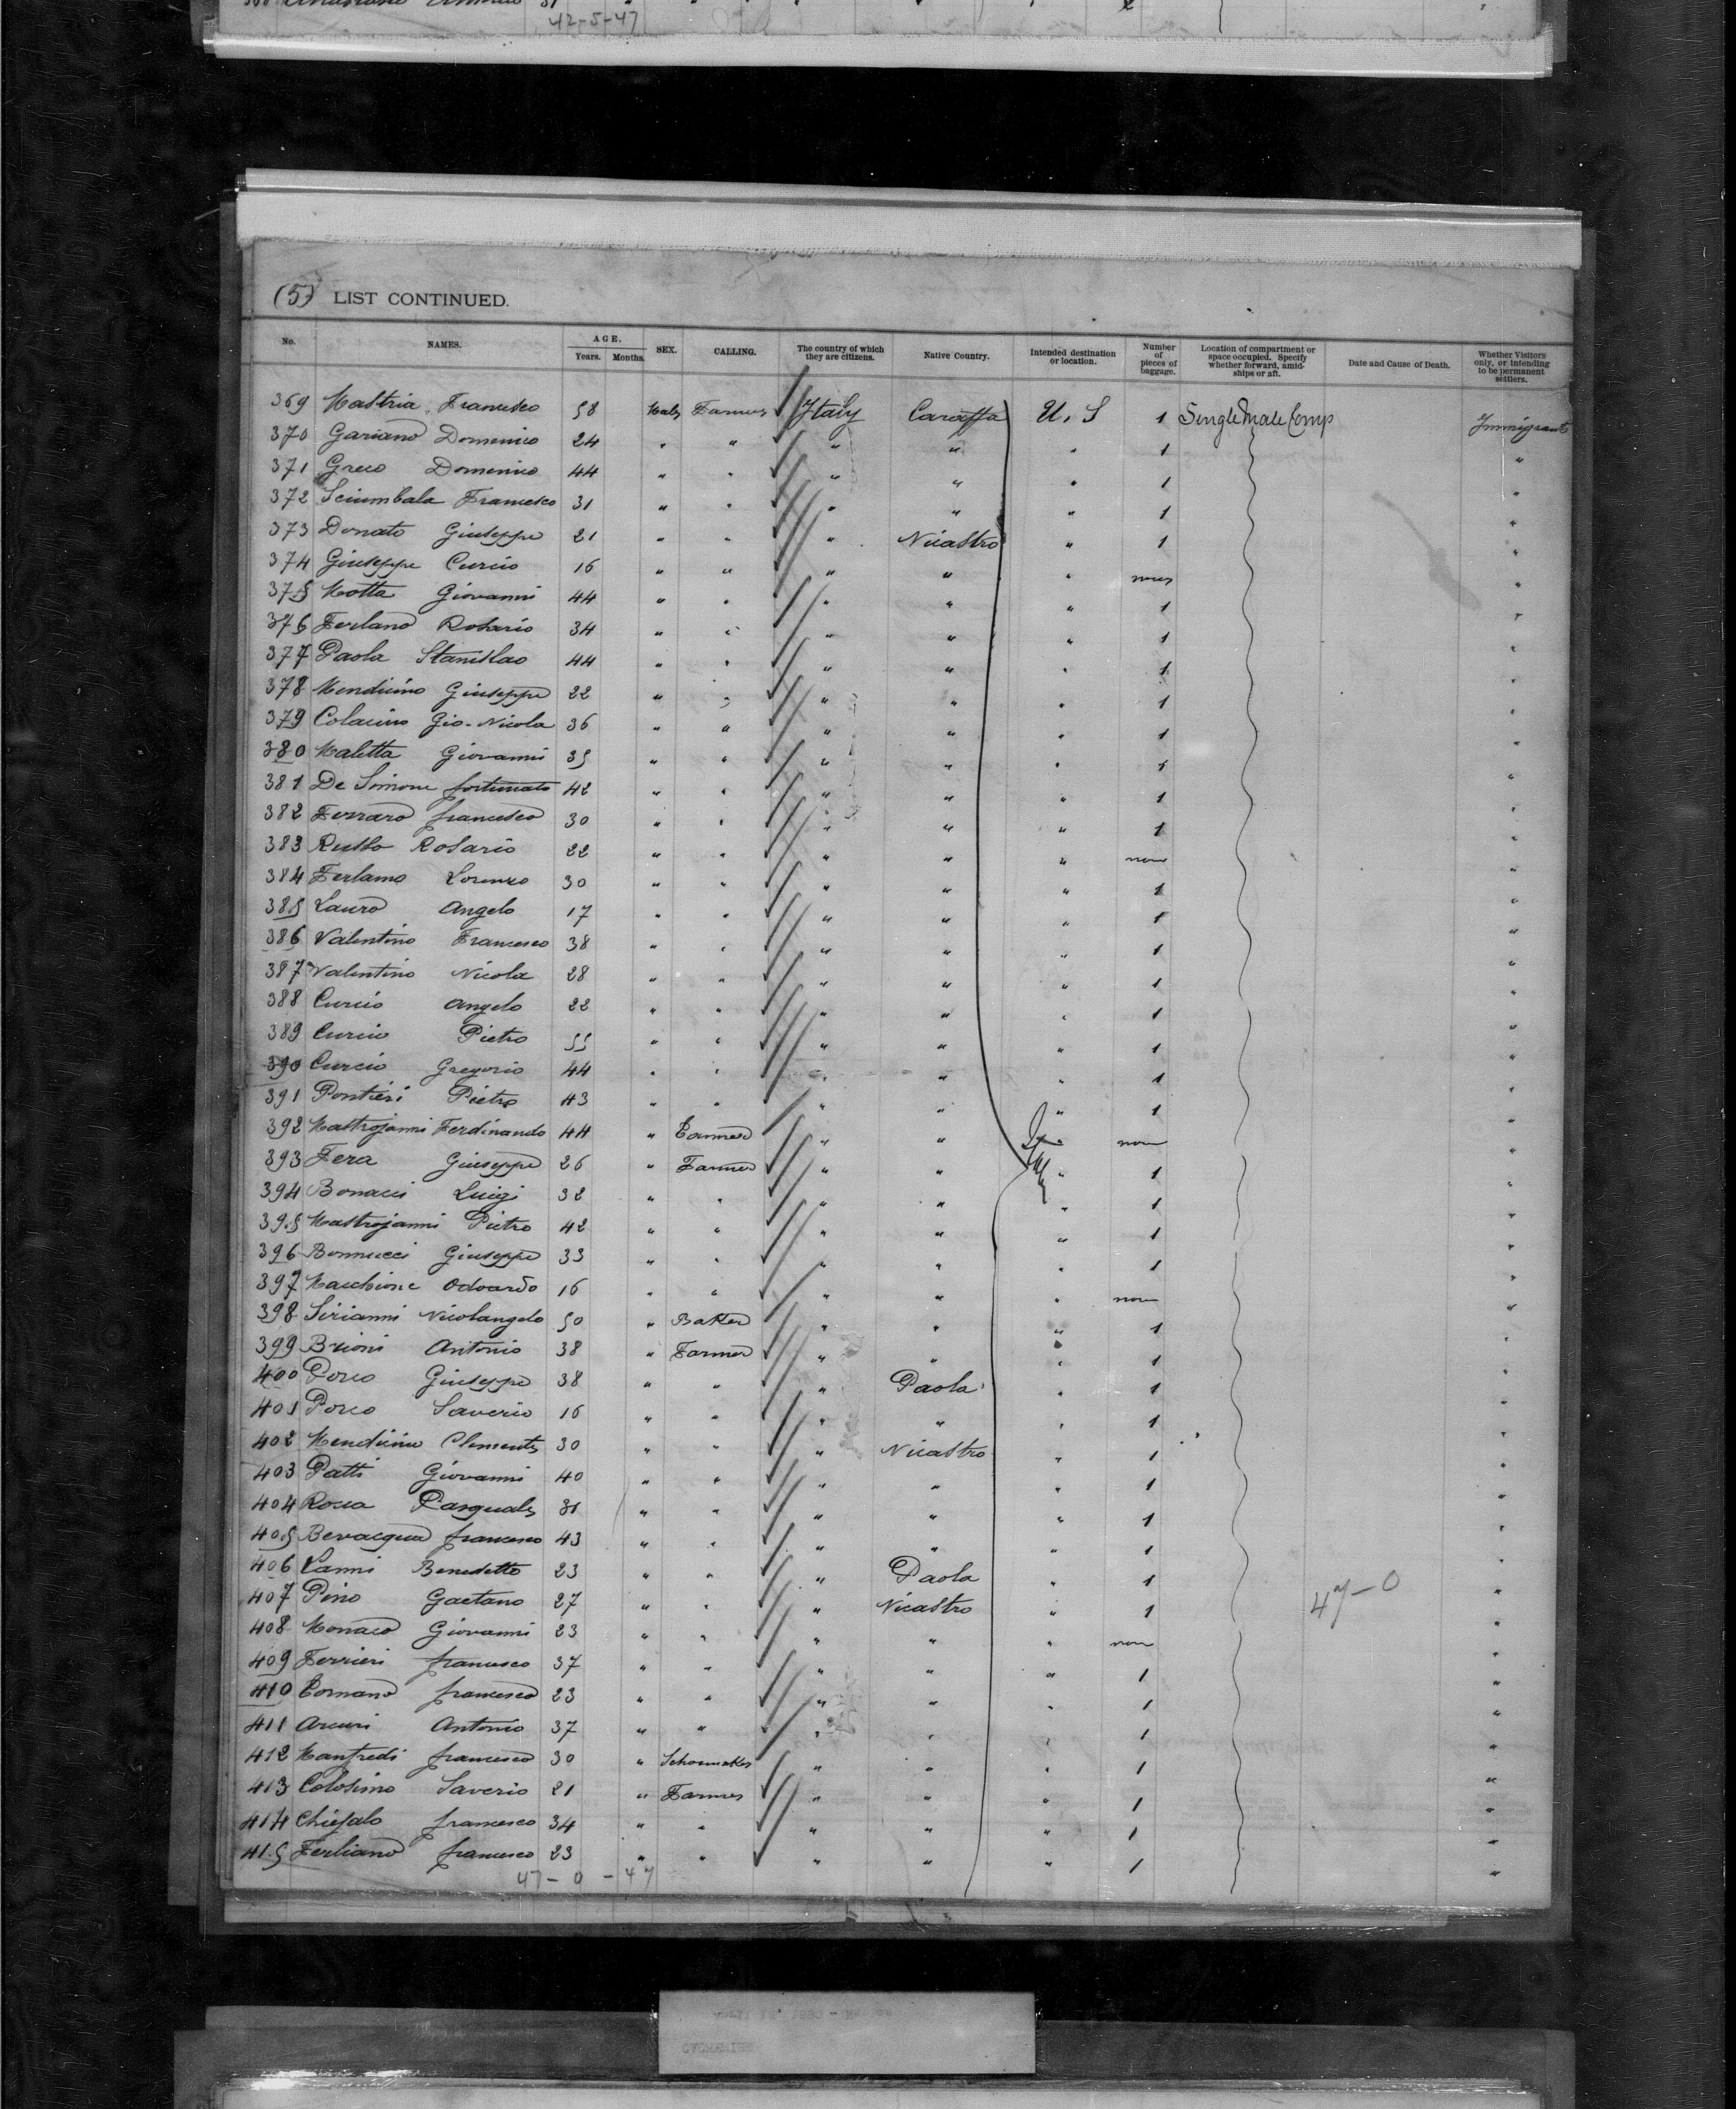 42-5-47
(5) LIST CONTINUED.
No. NAMES. AGE. Years. Months. SEX. CALLING. The country of which they are citizens. Native Country. Intended destination or location. Number of pieces of baggage. Location of compartment or space occupied. Specify whether forward, amidships or aft. Date and Cause of Death. Whether Visitors only, or intending to be permanent settlers.
369 Mastria Francesco 58 Male Farmer Italy Caraffa U. S 1 Single Male Comp Immigrant
370 Gariano Domenico 24 " " " " " 1 "
371 Greco Domenico 44 " " " " " 1 "
372 Sciumbala Francesco 31 " " " " " 1 "
373 Donato Giuseppe 21 " " " Nicastro " 1 "
374 Giuseppe Curcio 16 " " " " " none "
375 Motta Giovanni 44 " " " " " 1 "
376 Ferlano Rosario 34 " " " " " 1 "
377 Paola Stanislao 44 " " " " " 1 "
378 Mendicino Giuseppe 22 " " " " " 1 "
379 Colacino Gio-Nicola 36 " " " " " 1 "
380 Maletta Giovanni 35 " " " " " 1 "
381 De Simone fortunato 42 " " " " " 1 "
382 Ferraro francesco 30 " " " " " 1 "
383 Russo Rosario 22 " " " " " none "
384 Ferlamo Lorenzo 30 " " " " " 1 "
385 Lauro Angelo 17 " " " " " 1 "
386 Valentino Francesco 38 " " " " " 1 "
387 Valentino Nicola 28 " " " " " 1 "
388 Curcio Angelo 22 " " " " " 1 "
389 Curcio Pietro 55 " " " " " 1 "
390 Curcio Gregorio 44 " " " " " 1 "
391 Pontieri Pietro 43 " " " " " 1 "
392 Mastrojanni Ferdinando 44 " " " " none "
393 Fera Giuseppe 26 " Farmer " " " 1 "
394 Bonacci Luigi 32 " " " " " 1 "
395 Mastrojanni Pietro 42 " " " " " 1 "
396 Bonnucci Giuseppe 33 " " " " " 1 "
397 Macchione Odoardo 16 " " " " " none "
398 Sirianni Nicolangelo 50 " Baker " " " 1 "
399 Brioni Antonio 38 " Farmer " " " 1 "
400 Porco Giuseppe 38 " " " Paola " 1 "
401 Porco Saverio 16 " " " " " 1 "
402 Mendicino Clemente 30 " " " Nicastro " 1 "
403 Patti Giovanni 40 " " " " " 1 "
404 Rocca Pasquale 31 " " " " " 1 "
405 Bevacqua francesco 43 " " " " " 1 "
406 Vanni Benedetto 23 " " " Paola " 1 "
407 Pino Gaetano 27 " " " Nicastro " 1 47-0 "
408 Monaco Giovanni 23 " " " " " none "
409 Ferrieri francesco 37 " " " " " 1 "
410 francesco 23 " " " " " 1 "
411 Arcuri Antonio 37 " " " " " 1 "
412 Manfredi francesco 30 " Schoemaker " " " 1 "
413 Colosimo Saverio 21 " Farmer " " " 1 "
414 Chiefalo francesco 34 " " " " " 1 "
415 Ferliano francesco 23 " " " " " 1 "
47-0-47